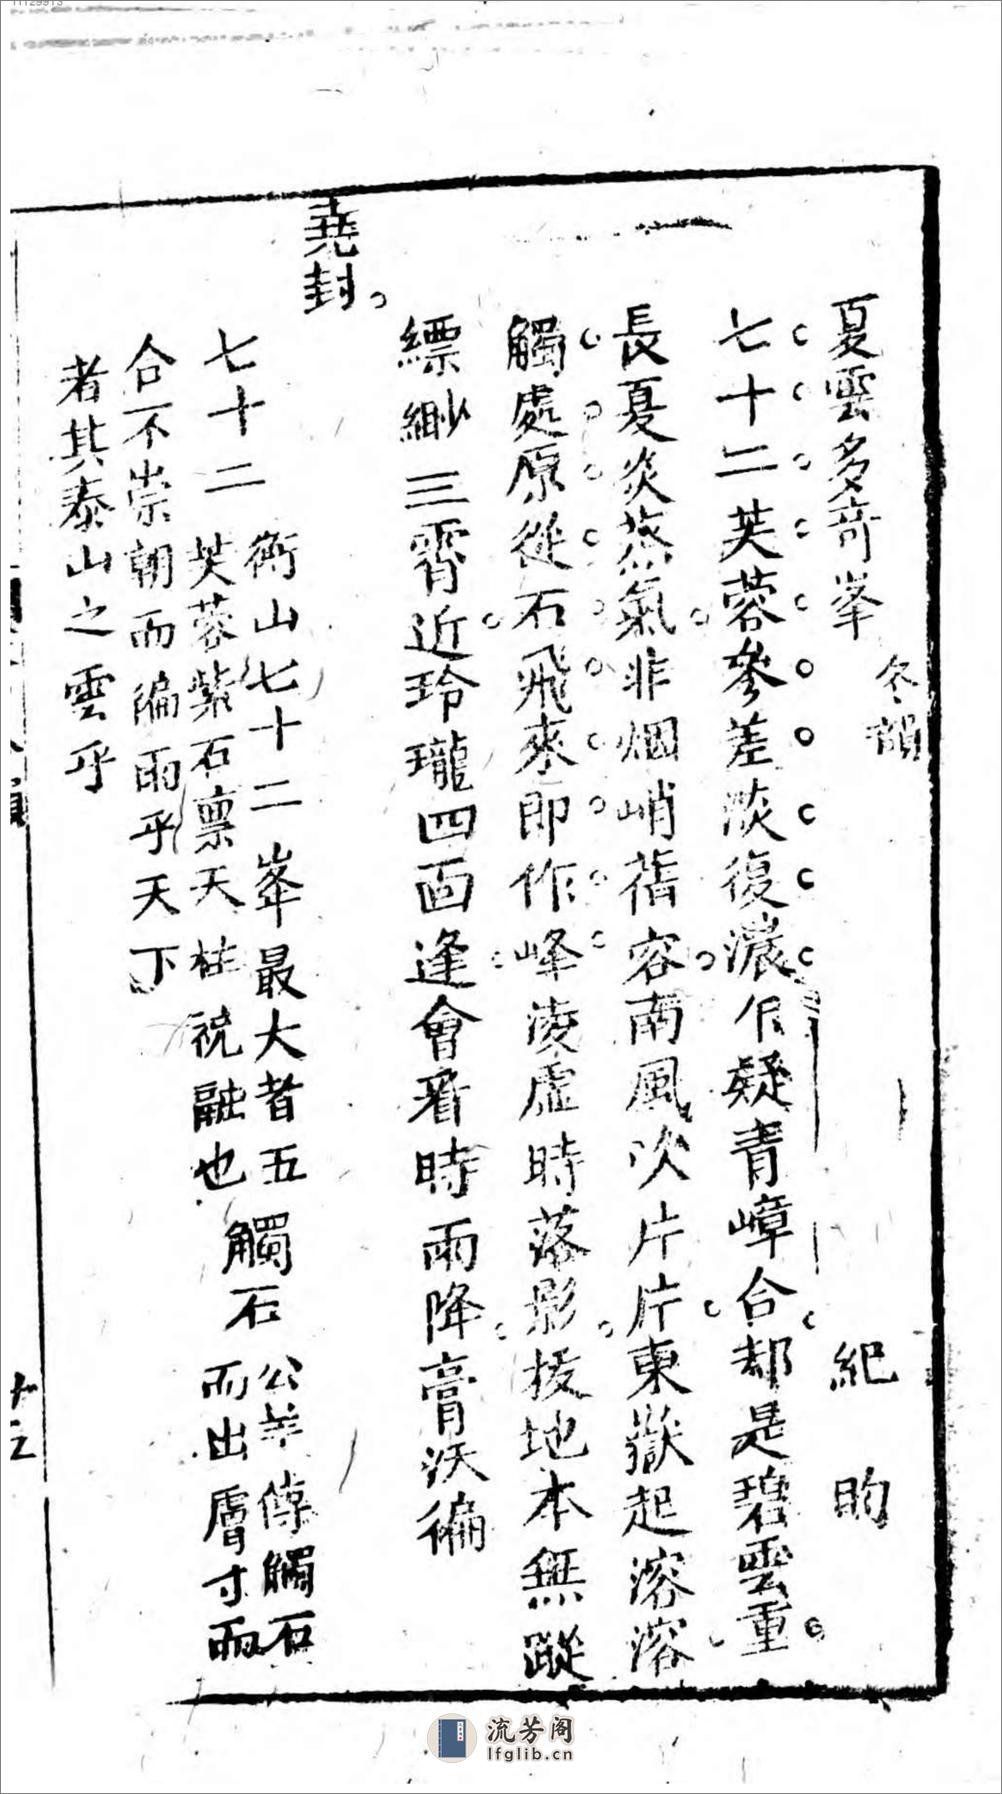 夏雲多奇峯 冬韻 紀昀
七十二芙蓉參差淡復濃乍疑青嶂合却是碧雲重
長夏炎蒸氣非烟峭蒨容南風吹片片東嶽起溶溶
觸處原從石飛來即作峰淩虛時落影拔地本無蹤
縹緲三霄近玲瓏四面逢會看時雨降膏沃徧
堯封
七十二 衡山七十二峯最大者五芙蓉紫石禀天柱祝融也 觸石 公羊傳觸石而出膚寸而
合不崇朝而徧雨乎天下
者其泰山之雲乎
流芳阁
lfglib.cn
11129913